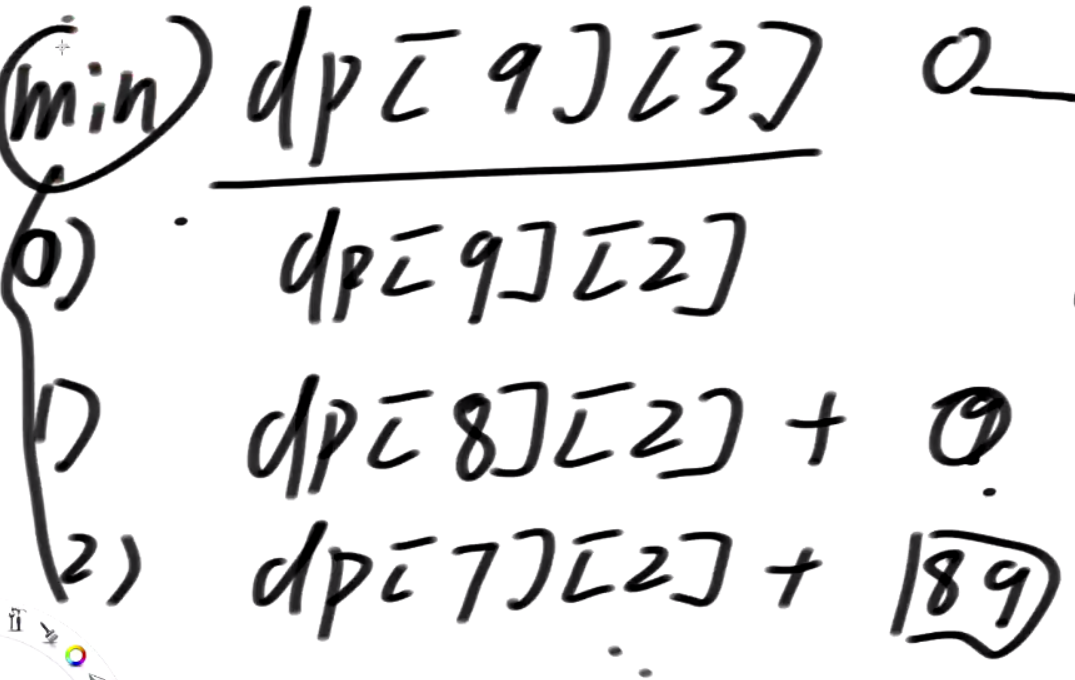 min dp[9][3] 0
0) dp[9][2]
1) dp[8][2] + 9
2) dp[7][2] + 89